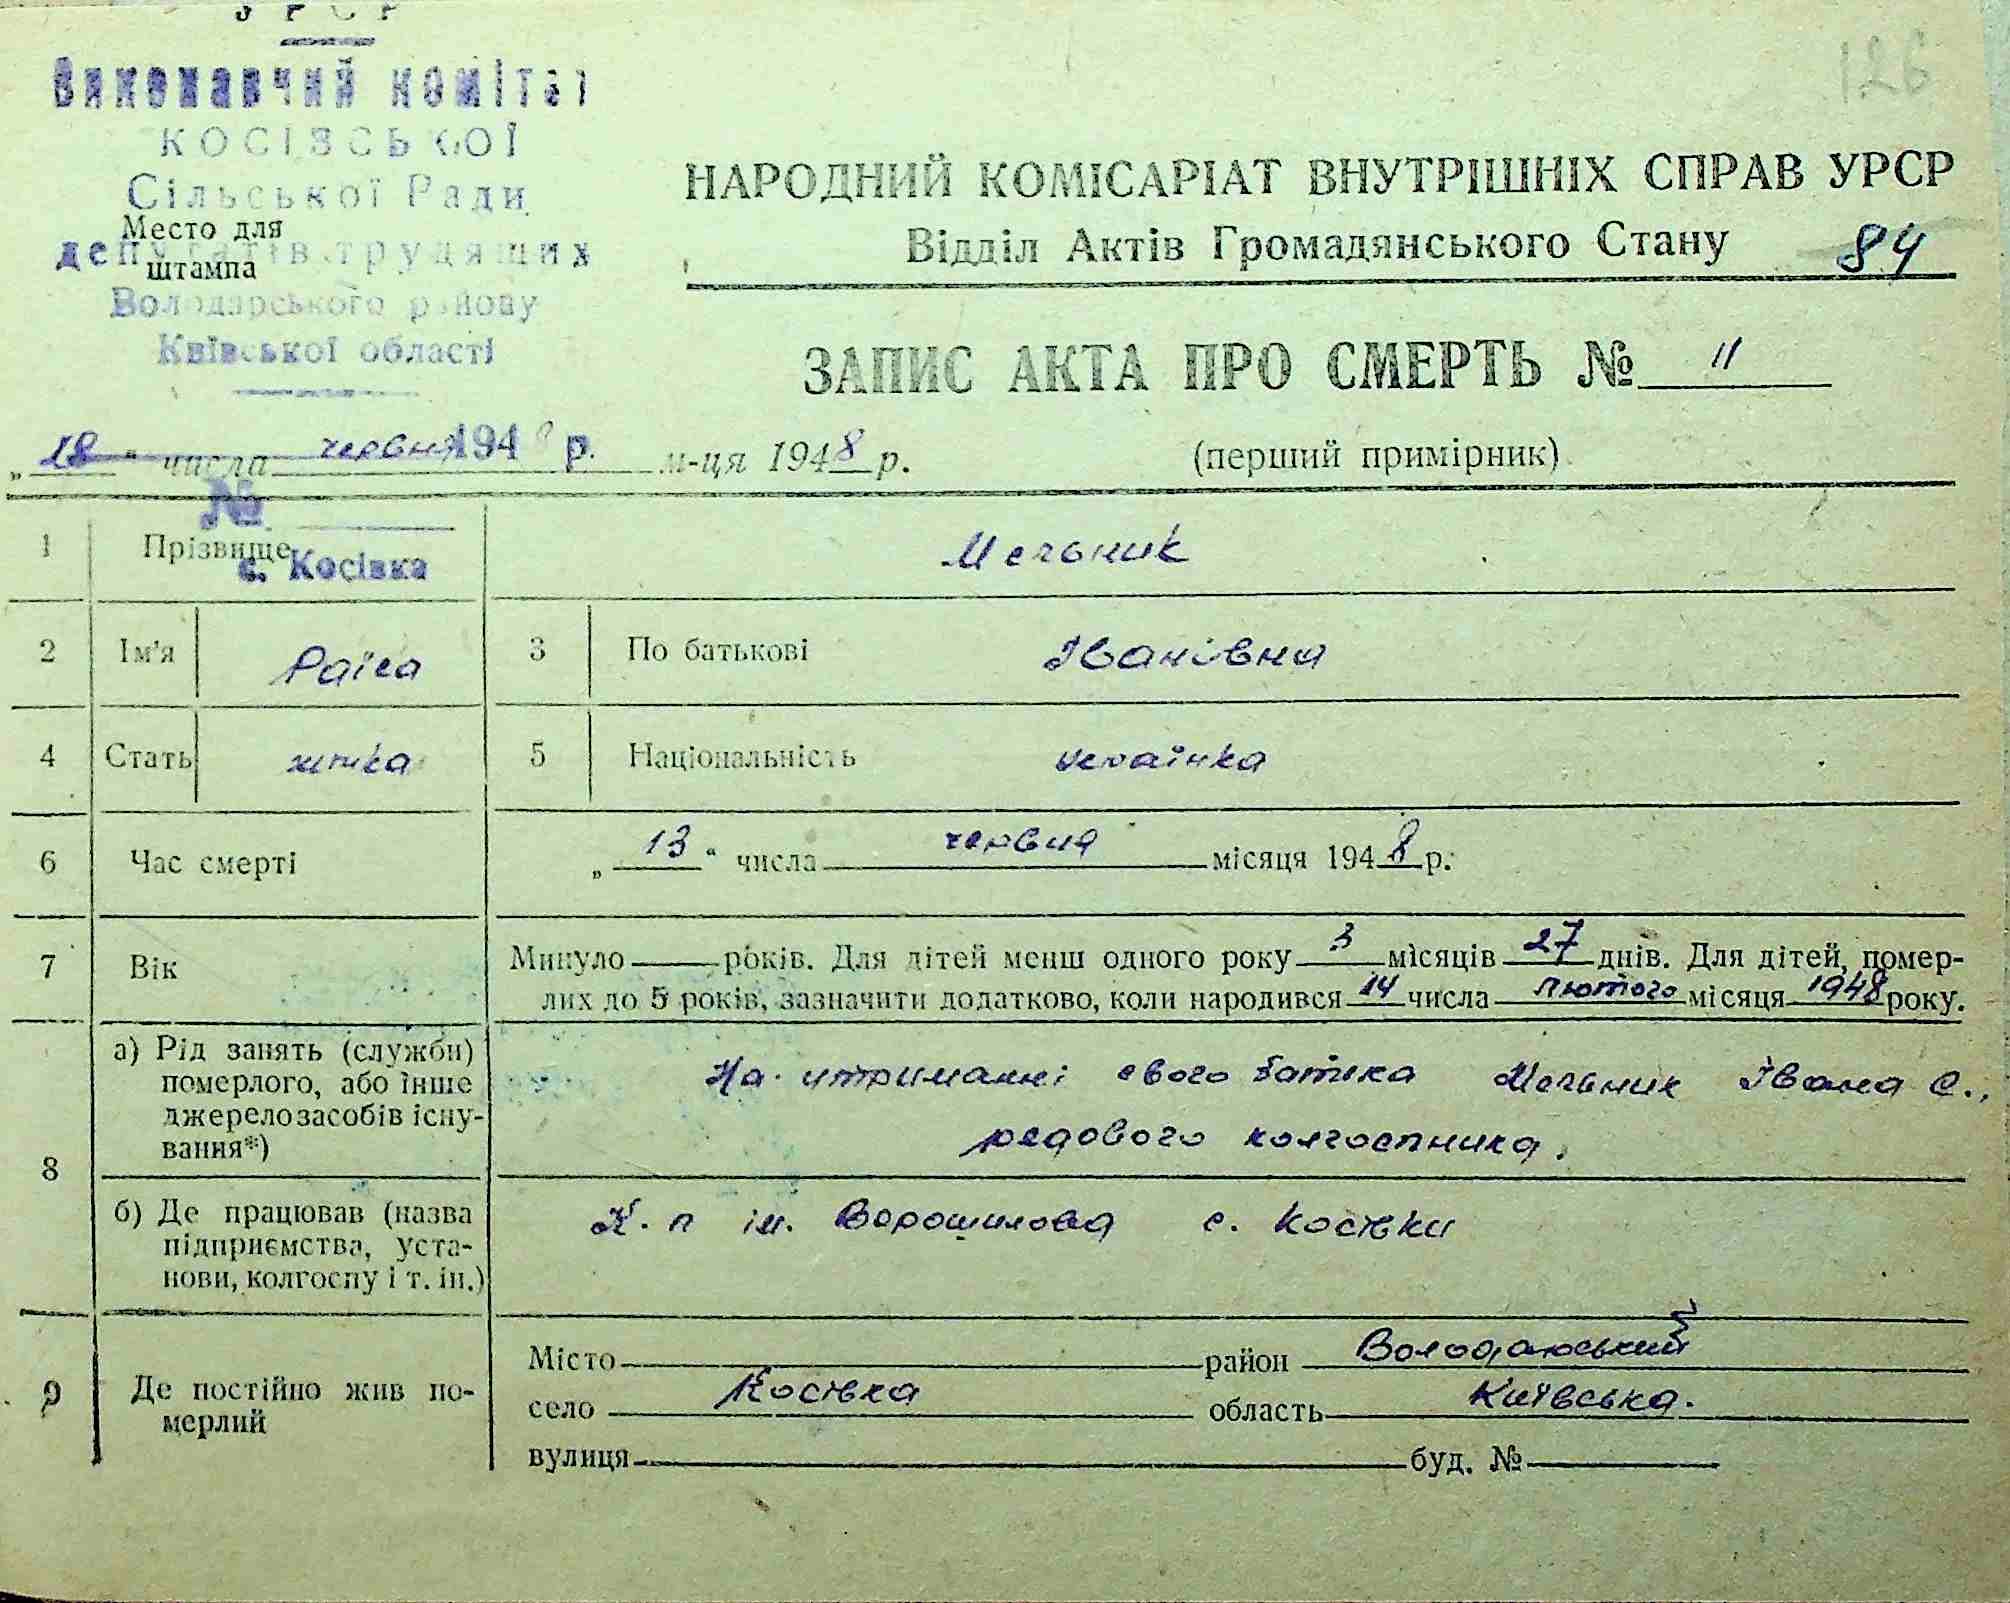 УРСР
Виконавчий комітет
КОСІВСЬКОЇ
Сільської Ради
депутатів трудящих
Володарського району
Київської області
Место для
штампа
126
НАРОДНИЙ КОМІСАРІАТ ВНУТРІШНІХ СПРАВ УРСР
Відділ Актів Громадянського Стану 84
ЗАПИС АКТА ПРО СМЕРТЬ № 11
„18“ числа червня м-ця 1948 р. (перший примірник)
194 р.
№
с. Косівка
1 Прізвище Мельник
2 Ім'я Раїса 3 По батькові Іванівна
4 Стать жінка 5 Національність українка
6 Час смерті „13“ числа червня місяця 1948 р.
7 Вік Минуло — років. Для дітей менш одного року 3 місяців 27 днів. Для дітей, помер-
лих до 5 років, зазначити додатково, коли народився 14 числа лютого місяця 1948 року.
8 а) Рід занять (служби)
померлого, або інше
джерело засобів існу-
вання*)
На утриманні свого батька Мельник Івана С.,
рядового колгоспника.
б) Де працював (назва
підприємства, уста-
нови, колгоспу і т. ін.)
К. п ім. Ворошилова с. Косівки
9 Де постійно жив по-
мерлий
Місто район Володарський
село Косівка область Київська.
вулиця буд. №